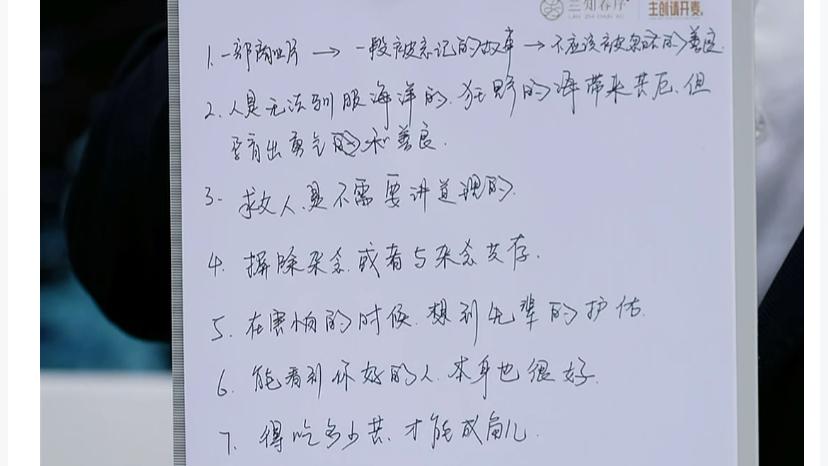 三知春序
主创请开麦。
1.一部商业片→一段被忘记的故事→不应该被忽略的善良.
2.人是无法驯服海洋的.狂野的海带来苦厄,但
孕育出勇气的和善良.
3.救人是不需要讲道理的.
4.摒除杂念.或者与杂念共存.
5.在害怕的时候.想到先辈的护佑.
6.能看到你好的人.本身也很好.
7.得吃多少苦.才能成角儿.